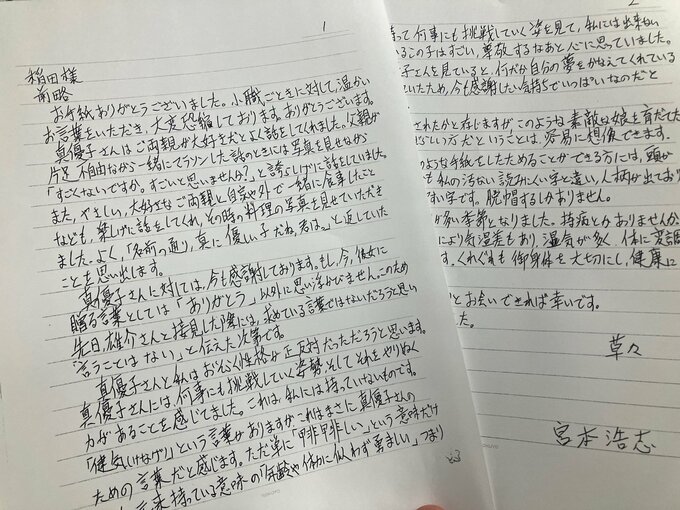 1
稲田様
前略
お手紙ありがとうございました。小職ごときに対して、温かい
お言葉をいただき、大変恐縮しております。ありがとうございます。
真優子さんはご両親が大好きだとよく話をしてくれました。父親が
片足不自由ながら一緒にマラソンした話のときには写真を見せながら
「すごくないですか。すごいと思いませんか?」と誇らしげに話をしていました。
また、やさしい、大好きなご両親と自宅や外で一緒に食事したこと
なども、楽しげに話をしてくれ、その時の料理の写真を見せていただき
ました。よく、「名前の通り、真に優しい子だね、君は。」と返していた
ことを思い出します。
真優子さんに対しては、今も感謝しております。もし、今、彼女に
贈る言葉としては「ありがとう」以外に思い浮かびません。このため
先日、雄介さんと接見した際には、求めている言葉ではないだろうと思い
「言うことはない」と伝えた次第です。
真優子さんと私はおそらく性格が正反対だっただろうと思います。
真優子さんには、何事にも挑戦していく姿勢そしてそれをやりぬく
力があることを感じてました。これは、私には持っていないものです。
「健気(けなげ)」という言葉がありますが、これはまさに、真優子さんの
ための言葉だと感じます。ただ単に「甲斐甲斐しい」という意味だけ
元来持っている意味の「年齢や体力に似わず勇ましい」つまり
2
って何事にも挑戦していく姿を見て、私には出来ない
いるこの子はすごい、尊敬するなあと心に思っていました。
子さんを見ていると、何だか自分の夢をかなえてくれている
いたため、今も感謝したい気持ちでいっぱいなのだと
されたかと存じますが、このような素敵な娘を育だてた
ばらしい方だということは、容易に想像できます。
のような手紙をしたためることができる方には、頭が
も私の汚ない読みにくい字と違い、人柄が出ており
ない字です。脱帽するしかありません。
が多い季節となりました。持病とかありませんか
により気温差もあり、湿気が多く、体に変調
す。くれぐれも御身体を大切にし、健康に
とお会いできれば幸いです。
した。
草々
宮本浩志